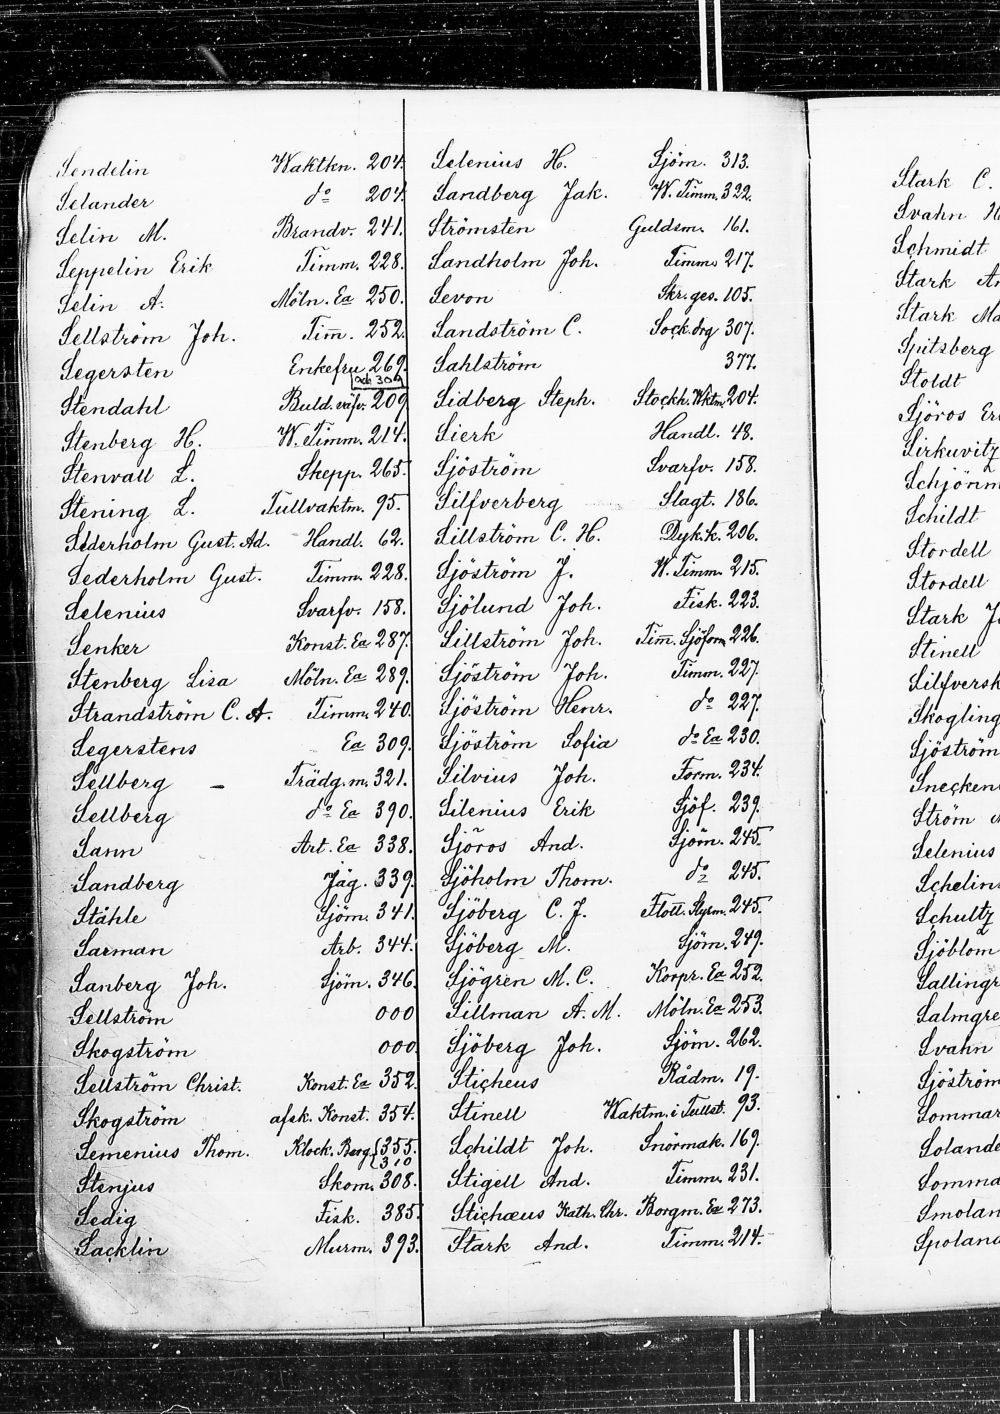 Sendelin Waktkn. 204.
Selander do 204.
Selin M. Brandv. 241.
Seppelin Erik Timm. 228.
Selin A. Möln. Ea 250.
Sellström Joh. Tim̅. 252.
Segersten Enkefru 269.
och 309
Stendahl Buld. väfv. 209
Stenberg H. W. Timm. 214.
Stenvall L. Skepp. 265.
Stening L. Tullvaktm. 95.
Sederholm Gust. Ad. Handl. 62.
Sederholm Gust. Timm. 228.
Selenius Svarfv. 158.
Senker Konst. Ea 287.
Stenberg Lisa Möln. Ea 289.
Strandström C. A. Timm. 240.
Segerstens Ea 309.
Sellberg – Trädg. m. 321.
Sellberg do Ea 390.
Sann Art. Ea 338.
Sandberg Jäg. 339.
Ståhle Sjöm. 341.
Sarman Arb. 344.
Sanberg Joh. Sjöm. 346.
Sellström 000
Skogström 000.
Sellström Christ. Konst. Ea 352.
Skogström afsk. Konst. 354.
Semenius Thom. Klock. Berg. 355.
310
Stenjus Skom. 308.
Sedig Fisk. 385.
Sacklin Murm. 393.
Selenius H. Sjöm. 313.
Sandberg Jak. W. Tim̅m. 322.
Strömsten Guldsm. 161.
Sandholm Joh. Timm. 217.
Sevon Skr. ges. 105.
Sandström C. Sock. drg 307.
Sahlström 377.
Sidberg Steph. Stockh. Wktm. 204.
Sierk Handl. 48.
Sjöström Svarfv. 158.
Silfverberg Slagt. 186.
Sillström C. H. Dyk. k. 206.
Sjöström J. W. Timm. 215.
Sjölund Joh. Fisk. 223.
Sillström Joh. Tim̅. Sjöform 226.
Sjöström Joh. Timm. 227.
Sjöström Henr. do 227.
Sjöström Sofia do Ea 230.
Silvius Joh. Form. 234.
Silenius Erik Sjöf. 239.
Sjöros And. Sjöm. 245.
Sjöholm Thom. do 245.
Sjöberg C. J. Flott. Styrm. 245.
Sjöberg M. Sjöm. 249.
Sjögren M. C. Korpr. Ea 252.
Sillman A. M. Möln. Ea 253.
Sjöberg Joh. Sjöm. 262.
Sticheus Rådm. 19.
Stinell Waktm. i Tullst. 93.
Schildt Joh. Snörmak. 169.
Stigell And. Timm. 231.
Stichæus Kath. Chr. Borgm. Ea 273.
Stark And. Timm. 214.
Stark C.
Svahn H
Schmidt
Stark An
Stark Ma
Spitsberg
Stoldt
Sjöros Er
Sirkuvitz
Schjönm
Schildt
Stordell
Stordell
Stark J
Stinell
Silfversk
Skogling
Sjöström
Snecken
Ström
Selenius
Schelin
Schultz
Sjöblom
Sallingr
Salmgre
Svahn
Sjöström
Sommar
Solande
Somma
Smolan
Spoland